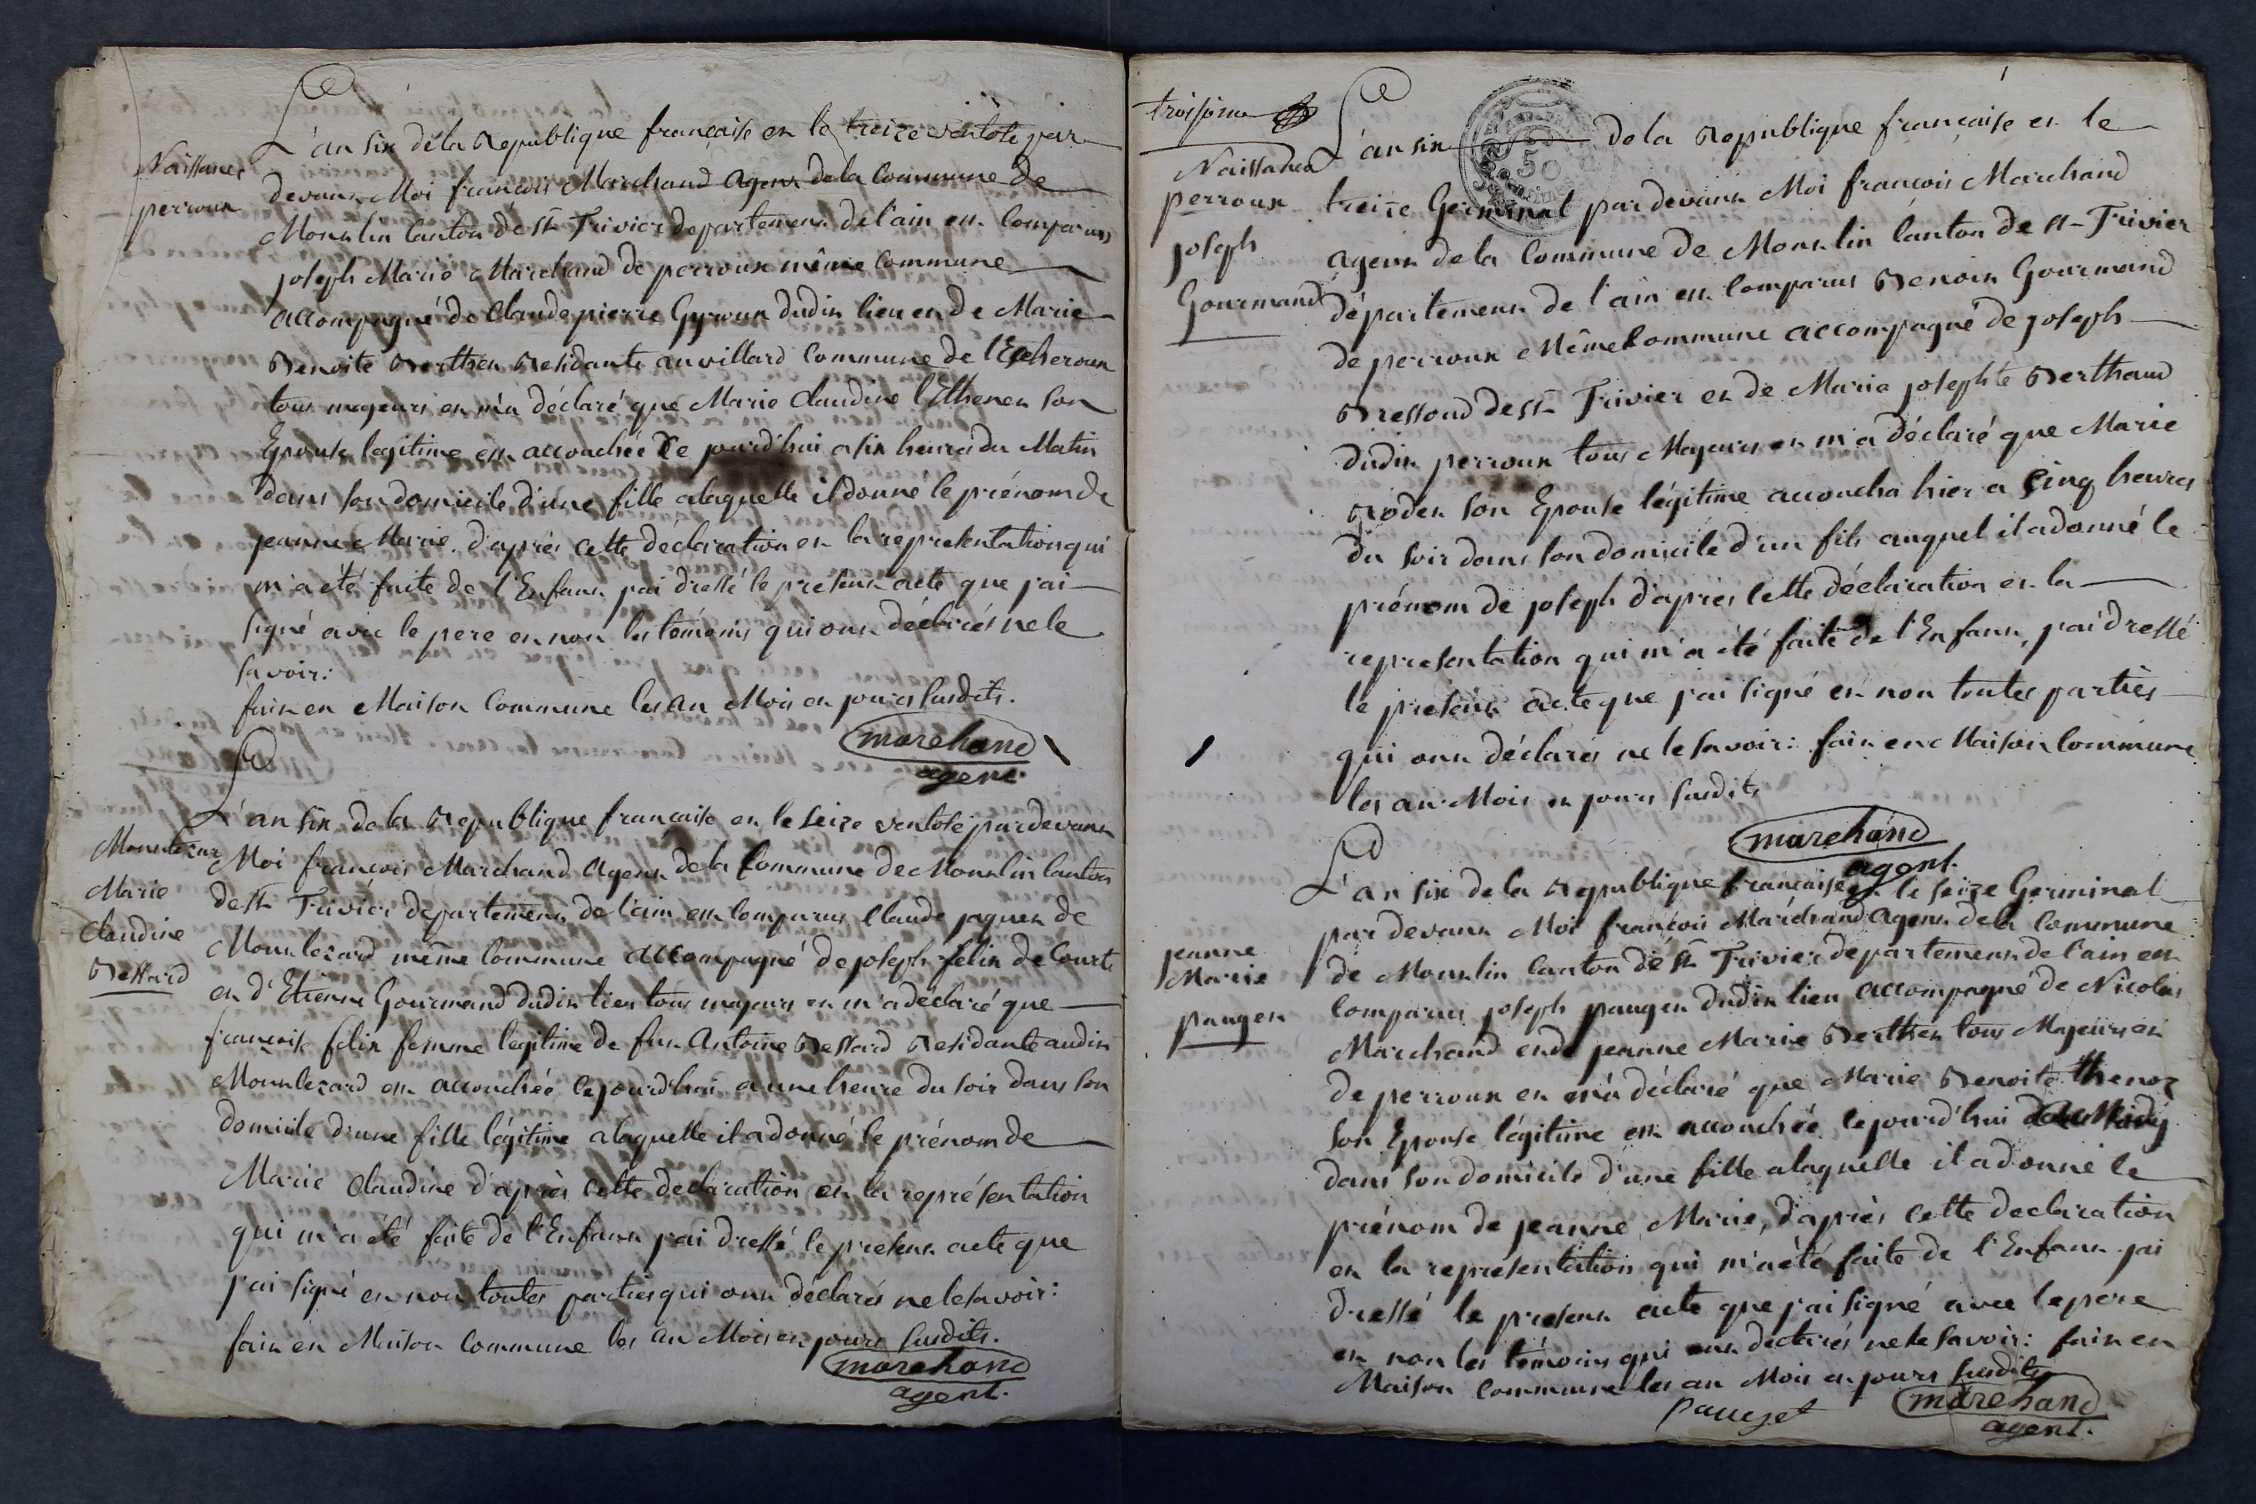 Naissances
perroux
L'an six de la Republique française et le treize ventose par
devant Moi françois Marchand agent de la Commune de
Montlin Canton de st Trivier departement de l'ain est Comparus
joseph Marie Marchand de perroux même Commune
accompagné de Claude pierre Gyroux dudit lieu et de Marie
Benoite Berthet Residante au villard Commune de l'Echeroux
tous majeurs et m'a déclaré que Marie Claudine l'Ethenet son
Epouse legitime est accouchée Ce jourd'hui a six heures du Matin
dans son domicile d'une fille a laquelle il donné le prénom de
jeanne Marie. d'après cette déclaration et la representation qui
m'a été faite de l'Enfant j'ai dressé le present acte que j'ai
signé avec le pere et non les témoins qui ont déclarés ne le
savoir:
fait en Maison Commune les an Mois et jours susdits.
marchand
agent
Montlezar
Marie
Claudine
Bessard
L'an six de la Republique française et le seize ventose pardevant
Moi françois Marchand Agent de la Commune de Montlin Canton
de st Trivier departement de l'ain est Comparus Claude jaquet de
Montlezard même Commune accompagné de joseph felix de Courte
et d'Etienne Gourmand dudit lieu tous majeurs et m'a déclaré que
françoise felix femme legitime de fut Antoine Bessard Residante audit
Montlezard est accouchée Cejourd'hui a une heure du soir dans son
domicile d'une fille légitime a laquelle il a donné le prénom de
Marie Claudine d'après cette declaration et la représentation
qui m'a été faite de l'Enfant j'ai dressé le present acte que
j'ai signé et non toutes parties qui ont déclarés ne le savoir:
fait en Maison Commune les an Mois et jours susdits.
marchand
agent.
troisieme
Naissances
perroux
joseph
Gourmand
L'an six de la Republique française et le
50
treize Germinal par devant Moi françois Marchand
agent de la Commune de Montlin Canton de st Trivier
département de l'ain est Comparus Benoit Gourmand
de perroux Même Commune accompagné de joseph
Bressoud de st Trivier et de Marie josephte Berthaud
dudit perroux tous Majeurs et m'a déclaré que Marie
Bodet son Epouse légitime accoucha hier a Cinq heures
du soir dans son domicile d'un fils auquel il a donné le
prénom de joseph d'après Cette déclaration et la
representation qui m'a été faite de l'Enfant, j'ai dressé
le présent acte que j'ai signé et non toutes parties
qui ont déclarés ne le savoir: fait en Maison Commune
les an Mois et jours susdits
marchand
agent.
jeanne
Marie
pauget
L'an six de la Republique française et le seize Germinal
par devant Moi françois Marchand Agent de la Commune
de Montlin Canton de st Trivier departement de l'ain est
Comparus joseph pauget dudit lieu accompagné de Nicolas
Marchand et de jeanne Marie Berthet tous Majeurs et
de perroux et m'a déclaré que Marie Benoite thenoz
son Epouse légitime est accouchée Cejourd'hui
dans son domicile d'une fille a laquelle il a donné le
prénom de jeanne Marie, d'après cette declaration
et la representation qui m'a été faite de l'Enfant j'ai
dressé le present acte que j'ai signé avec le pere
et non les témoins qui ont declarés ne le savoir: fait en
Maison Commune les an Mois et jours susdits
pauget
marchand
agent.